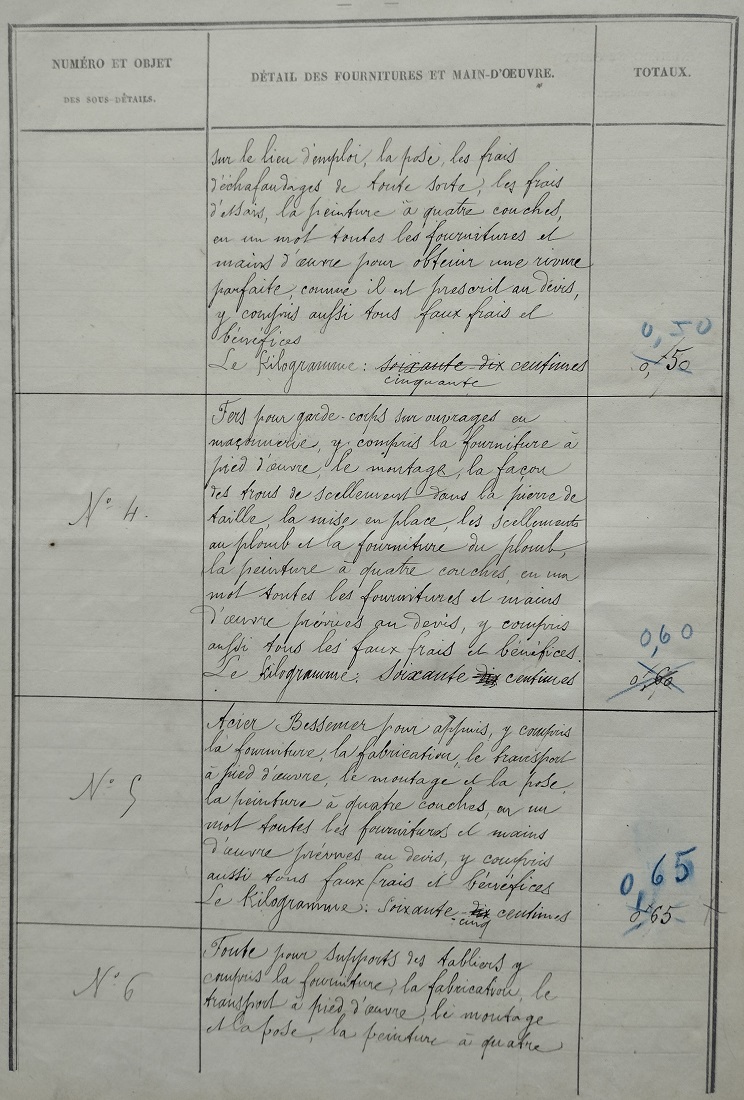 NUMÉRO ET OBJET
DES SOUS-DÉTAILS.
DÉTAIL DES FOURNITURES ET MAIN-D'ŒUVRE.
TOTAUX.
sur le lieu d'emploi, la pose, les frais
d'échafaudages de toute sorte, les frais
d'essais, la peinture à quatre couches,
en un mot toutes les fournitures et
mains d'œuvre pour obtenir une rivure
parfaite, comme il est prescrit au devis,
y compris aussi tous faux frais et
bénéfices
Le Kilogramme: soixante dix centimes
cinquante
0,50
0,50
N° 4.
Fers pour garde-corps sur ouvrages en
maçonnerie, y compris la fourniture à
pied d'œuvre, le montage, la façon
des trous de scellement dans la pierre de
taille, la mise en place, les scellements
au plomb et la fourniture du plomb,
la peinture à quatre couches, en un
mot toutes les fournitures et mains
d'œuvre prévues au devis, y compris
aussi tous les faux frais et bénéfices.
Le Kilogramme: Soixante dix centimes
0,60
0,60
N° 5
Acier Bessemer pour appuis, y compris
la fourniture, la fabrication, le transport
à pied d'œuvre, le montage et la pose,
la peinture à quatre couches, en un
mot toutes les fournitures et mains
d'œuvre prévues au devis, y compris
aussi tous faux frais et bénéfices
Le Kilogramme: Soixante dix centimes
cinq
0,65
0,65
N° 6
Fonte pour supports des tabliers y
compris la fourniture, la fabrication, le
transport à pied d'œuvre, le montage
et la pose, la peinture à quatre